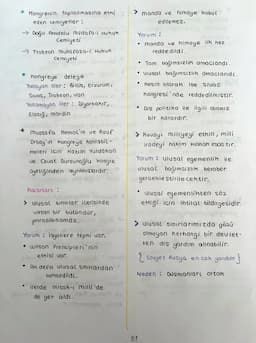 * Kongrenin toplanmasına etki
eden cemiyetler :
→ Doğu Anadolu Müdafaa-i Hukuk
Cemiyeti
→ Trabzon Muhafaza-i Hukuk
Cemiyeti
* Kongreye delege
Yollayan iller : Bitlis, Erzurum,
Sivas, Trabzon, Van
Yollamayan iller : Diyarbakır,
Elazığ, Mardin
Mustafa Kemal'in ve Rauf
Orbay'ın kongreye katılabil-
meleri için Kazım Yurdalan
ve Cevat Dursunoğlu kongre
üyeliğinden ayrılmışlardır.
Kararları :
> Ulusal sınırlar içerisinde
vatan bir bütündür,
parçalanamaz.
Yorum : İşgallere tepki var.
• Wilson Prensipleri'nin
etkisi var.
• İlk defa ulusal sınırlardan
bahsedildi.
• İleride Misak-ı Milli'de
de yer aldı.
> Manda ve himaye kabul
edilemez.
Yorum :
• Manda ve himaye ilk kez
reddedildi.
• Tam bağımsızlık amaçlandı.
• Ulusal bağımsızlık amaçlandı.
• Kesin olarak ise Sivas
Kongresi'nde reddedilmiştir.
• Dış politika ile ilgili alınmış
bir karardır.
> Kuvayi milliyeyi etkili, milli
iradeyi hakim kılmak esastır.
Yorum : Ulusal egemenlik ve
ulusal bağımsızlık beraber
gerçekleştirilecektir.
• Ulusal egemenlikten söz
ettiği için ihtilal bildirisidir.
> Ulusal sınırlarımızda gözü
olmayan herhangi bir devlet-
ten dış yardım alınabilir.
[ Sovyet Rusya en çok yardım ]
Neden : Düşmanları ortak